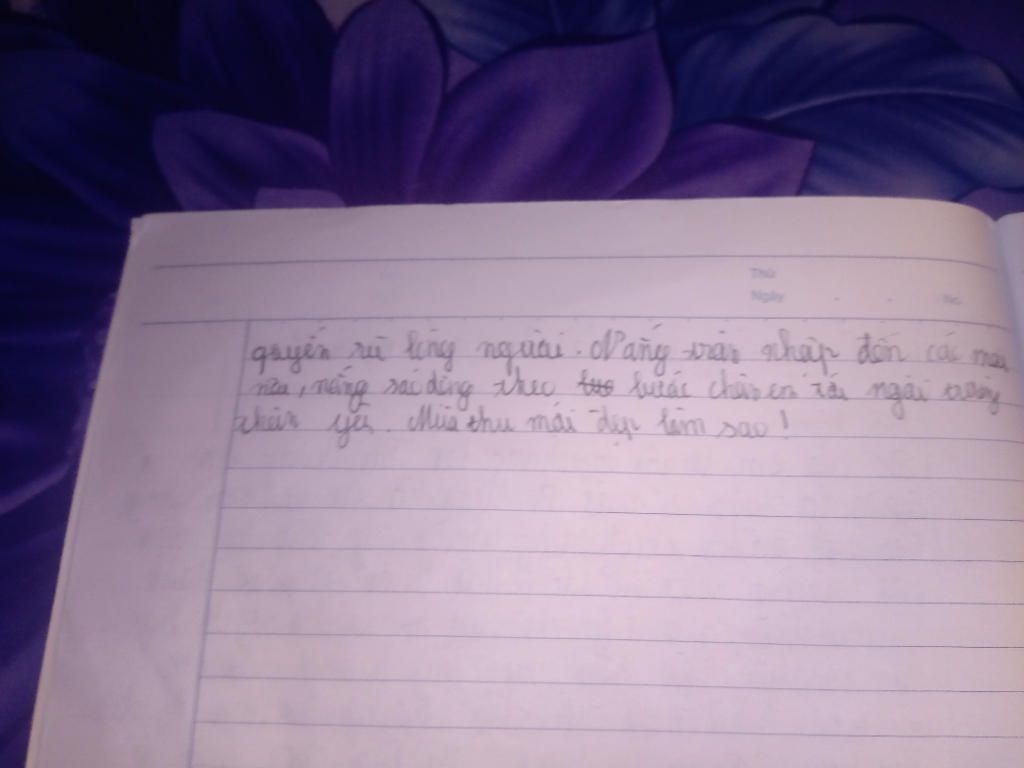 Thứ
Ngày . . No.
quyến rũ lòng người. Nắng tràn nhập đến các
nữa, nắng soi dõng theo bước chân em tới ngôi trường
thân yêu. Mùa thu mới đẹp làm sao!